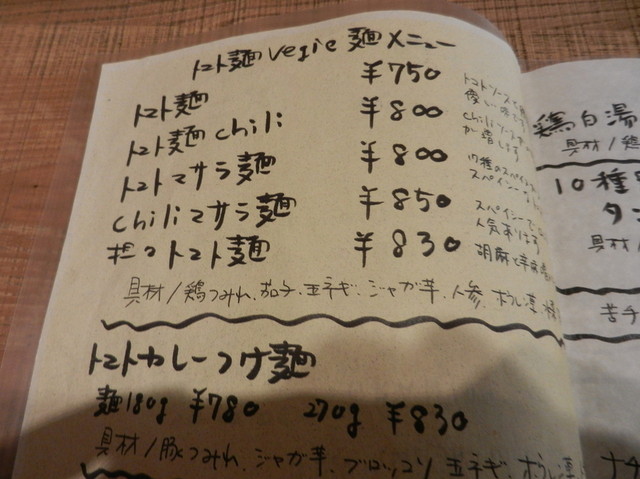 トマト麺 vegie 麺 メニュー
トマト麺 ¥750
トマト麺 chili ¥800
トマトマサラ麺 ¥800
chiliマサラ麺 ¥850
トマト麺 ¥830
トマトソース
chiliソース
17種のスパイス
スパイシー
スパイシー
人気あります
胡麻と
具材/鶏つみれ、茄子、玉ネギ、ジャガ芋、人参、ホウレン草
トマトカレーつけ麺
麺180g ¥780 270g ¥830
具材/豚つみれ、ジャガ芋、ブロッコリ 玉ネギ、ホウレン
鶏白湯
具材/鶏
10種
タン
具材
苦手